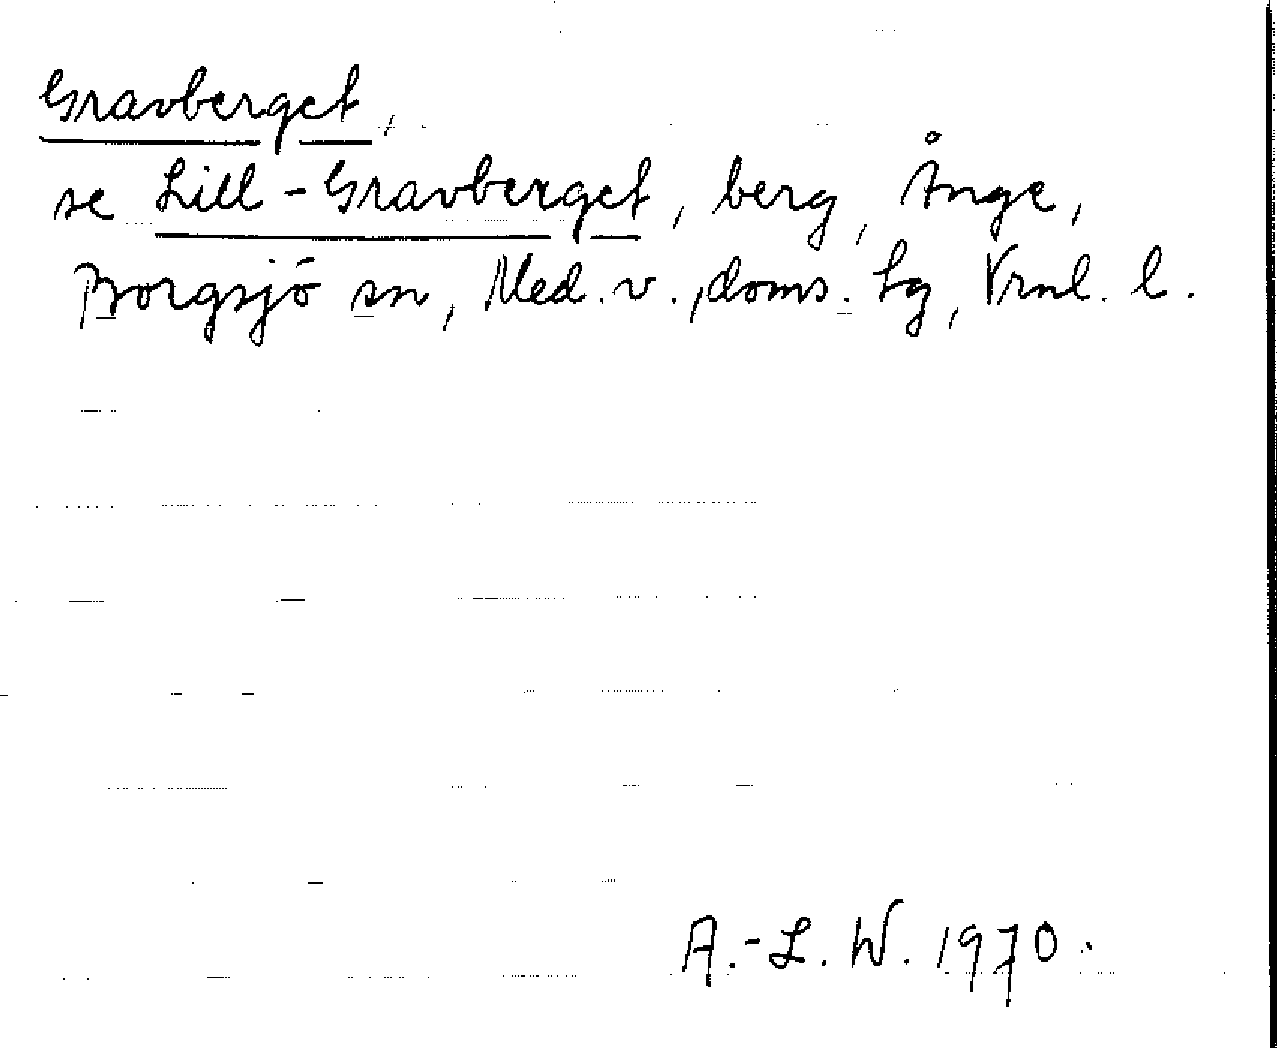 Gravberget,
se Lill-Gravberget, berg, Ånge,
Borgsjö sn, Med. v., doms. lg, Vrnl. l.
A.-L. W. 1970.